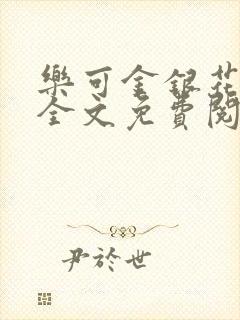 樂可金銀花
全文免費閱
尹於世